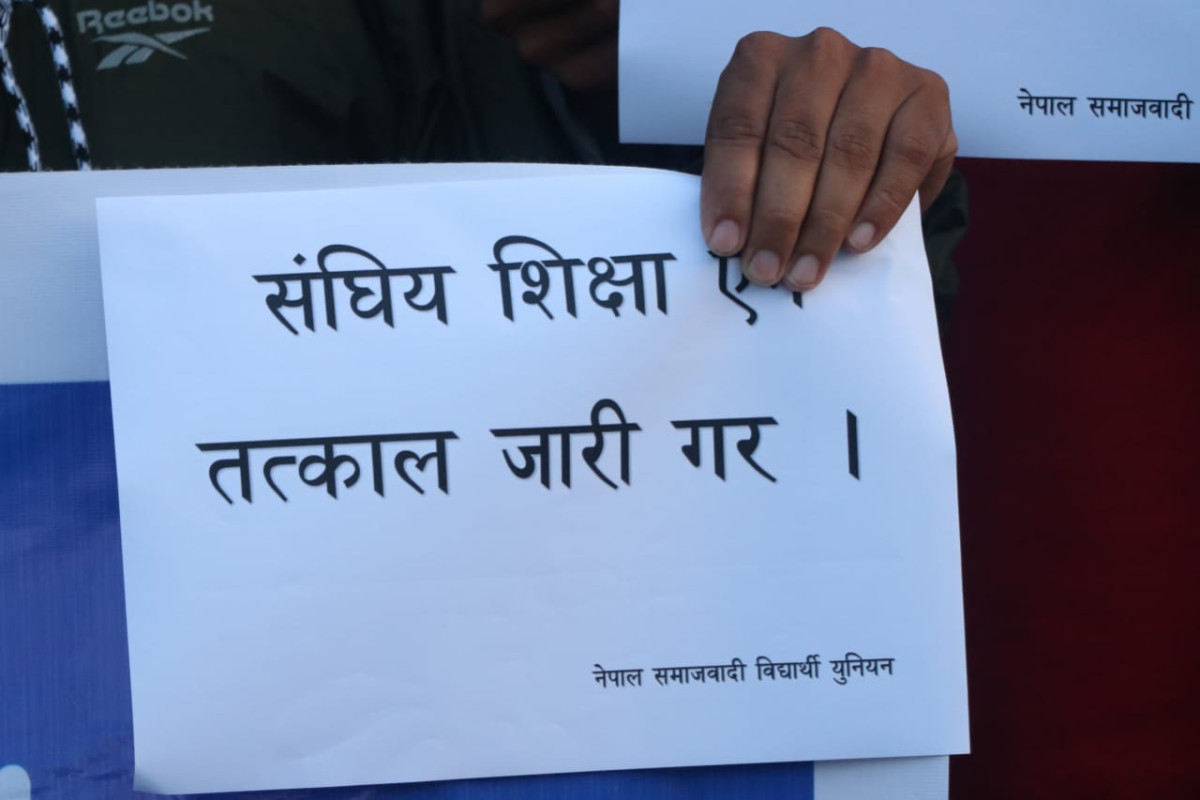 Reebok
नेपाल समाजवादी
संघिय शिक्षा
तत्काल जारी गर ।
नेपाल समाजवादी विद्यार्थी युनियन